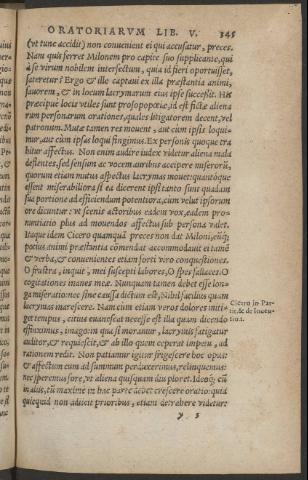 ORATORIARVM LIB. V. 345
(vt tune accidit) non conuenient ei qui accusatur, preces.
Nam quis ferret Milonem pro capite suo supplicante, qui
à se virum nobilem interfectum, quia id fieri oportuisset,
fateretur? Ergo & illo captaui ex illa præstantia animi,
fauorem, & in locum lacrymarum eius ipse successit. His
præcipuè locis vtiles sunt prosopopœiæ, id est fictæ aliena
rum personarum orationes, quales litigatorem decent, vel
patronum. Mutæ tamen res mouent, aut cùm ipsis loqui-
mur, aut cùm ipsas loqui fingimus. Ex personis quoque tra
hitur affectus. Non enim audire iudex videtur aliena mala
deflentes, sed sensum ac vocem auribus accipere miserorū,
quorum etiam mutus aspectus lacrymas mouet: quantóque
essent miserabiliora si ea dicerent ipsi tanto sunt quadam
sui portione ad efficiendum potentiora, cùm velut ipsorum
ore dicuntur: vt scenis actoribus eadem vox, eadem pro-
nuntiatio plus ad mouendos affectus sub persona valet.
Itaque idem Cicero quamquā preces non dat Miloni, eúq;
potius animi præstantia commēdat accommodauit ei tamē
& verba, & conuenientes etiam forti viro conquestiones.
O frustra, inquit, mei suscepti labores, O spes fallaces. O
cogitationes inanes meæ. Nunquam tamen debet esse lon-
ga miseratio: nec sine caussa dictum est, Nihil faciliùs quam
lacrymas inarescere. Nam cùm etiam veros dolores miti-
get tempus, citius euanescat necesse est illa quam dicendo
effinximus, imago: in qua si moramur, lacrymis fatigatur
auditor, & requiescit, & ab illo quem ceperat impetu, ad
rationem redit. Non patiamur igitur frigescere hoc opus:
& affectum cum ad summum perduxerimus, relinquamus:
nec speremus fore, vt aliena quisquam diu ploret. Ideóq; cū
in aliis, tū maximè in hac parte debet crescere oratio: quia
quicquid non adiicit prioribus, etiam detrahere videtur:
Cicero in Par-
tit. & de Inuen-
tio. 1.
y 5